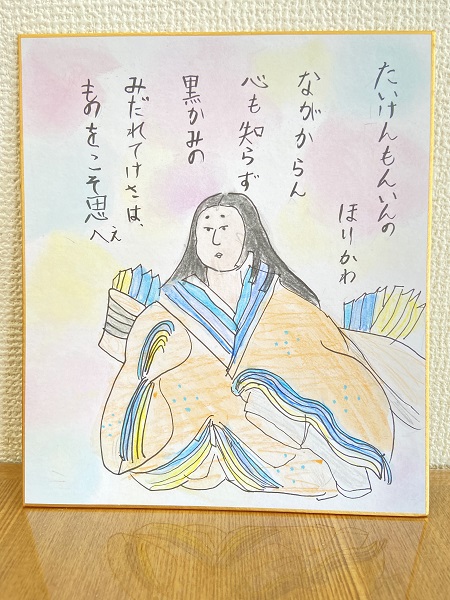 たいけんもんいんの
ほりかわ
ながからん
心も知らず
黒かみの
みだれてけさは、
ものをこそ思へえ